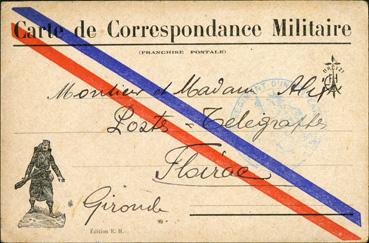 Carte de Correspondance Militaire
(FRANCHISE POSTALE)
Monsieur et Madame
Postes-Télégraphes
Floirac
Gironde
Édition E. R.